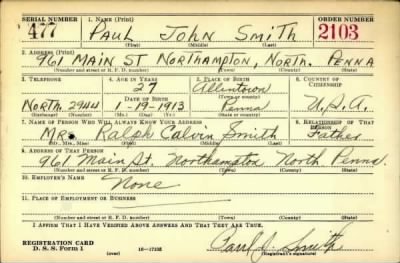 SERIAL NUMBER 1. NAME (Print) ORDER NUMBER
477 PAUL JOHN SMITH 2103
(First) (Middle) (Last)
2. ADDRESS (Print)
961 MAIN ST NORTHAMPTON, NORTH. PENNA
(Number and street or R. F. D. number) (Town) (County) (State)
3. TELEPHONE 4. AGE IN YEARS 5. PLACE OF BIRTH 6. COUNTRY OF CITIZENSHIP
27 Allentown
DATE OF BIRTH (Town or county)
NORTH. 2944 1-19-1913 Penna U.S.A.
(Exchange) (Number) (Mo.) (Day) (Yr.) (State or country)
7. NAME OF PERSON WHO WILL ALWAYS KNOW YOUR ADDRESS 8. RELATIONSHIP OF THAT PERSON
Mr. Ralph Calvin Smith Father
(Mr., Mrs., Miss) (First) (Middle) (Last)
9. ADDRESS OF THAT PERSON
961 Main St. Northampton North Penna.
(Number and street or R. F. D. number) (Town) (County) (State)
10. EMPLOYER'S NAME
None
11. PLACE OF EMPLOYMENT OR BUSINESS
(Number and street or R. F. D. number) (Town) (County) (State)
I AFFIRM THAT I HAVE VERIFIED ABOVE ANSWERS AND THAT THEY ARE TRUE.
REGISTRATION CARD
D. S. S. Form 1 (over) 16—17105 Paul J. Smith
(Registrant's signature)